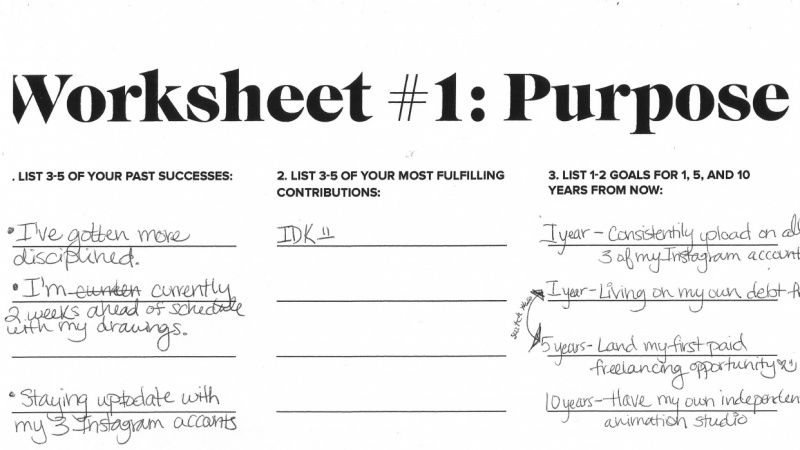 Worksheet #1: Purpose
. LIST 3-5 OF YOUR PAST SUCCESSES:
• I've gotten more
disciplined.
• I'm currently
2 weeks ahead of schedule
with my drawings.
• Staying uptodate with
my 3 Instagram accounts
2. LIST 3-5 OF YOUR MOST FULFILLING
CONTRIBUTIONS:
IDK
3. LIST 1-2 GOALS FOR 1, 5, AND 10
YEARS FROM NOW:
1 year - Consistently upload on all
3 of my Instagram account
1 year - Living on my own debt-f
5 years - Land my first paid
freelancing opportunity
10 years - Have my own independen
animation studio